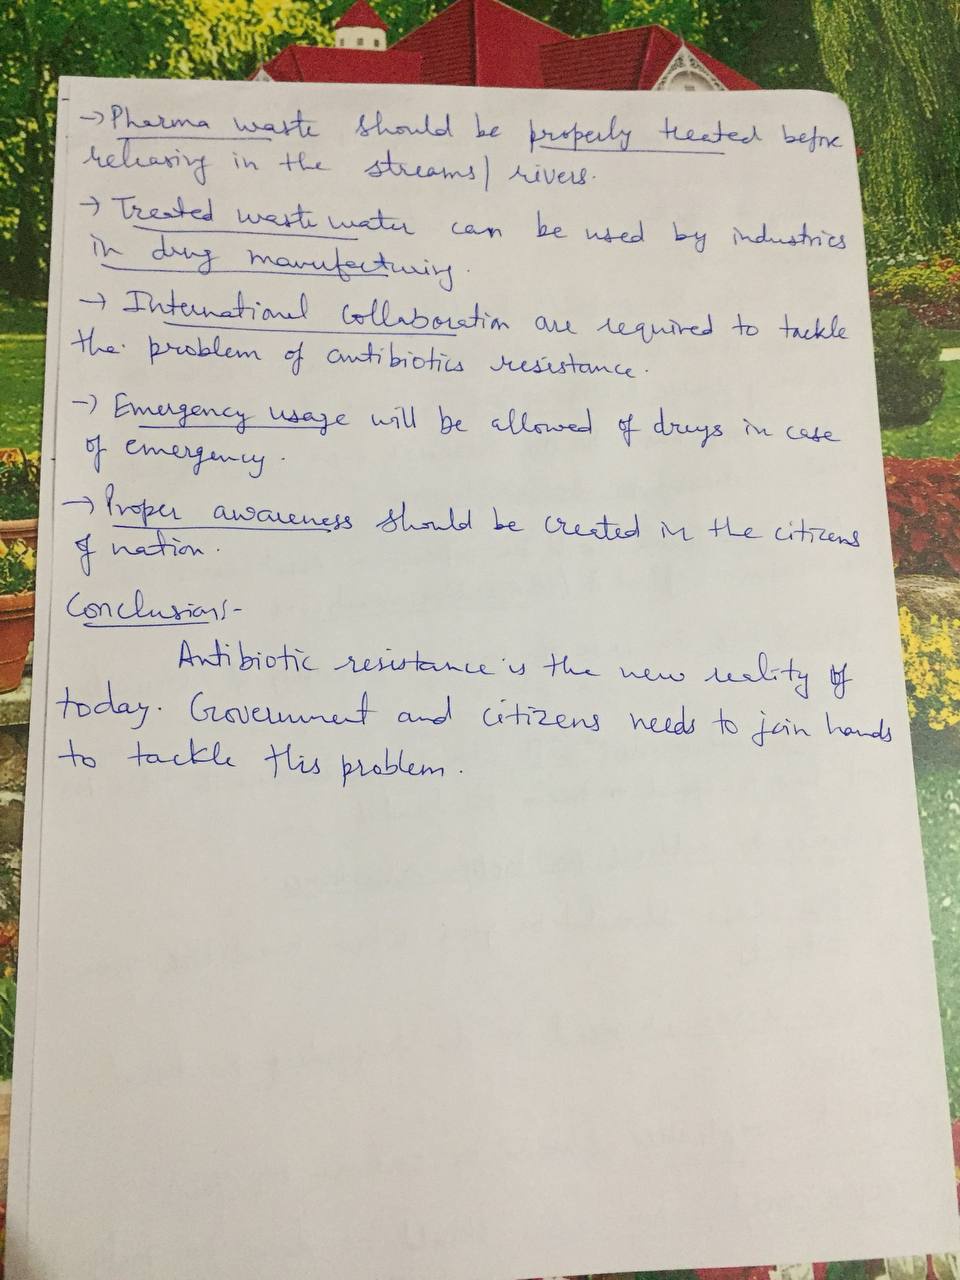 → Pharma waste should be properly treated before
releasing in the streams/ rivers.
→ Treated waste water can be used by industries
in drug manufacturing.
→ International Collaboration are required to tackle
the problem of antibiotics resistance.
→ Emergency usage will be allowed of drugs in case
of emergency.
→ Proper awareness should be created in the citizens
of nation.
Conclusion:-
Antibiotic resistance is the new reality of
today. Government and citizens needs to join hands
to tackle this problem.